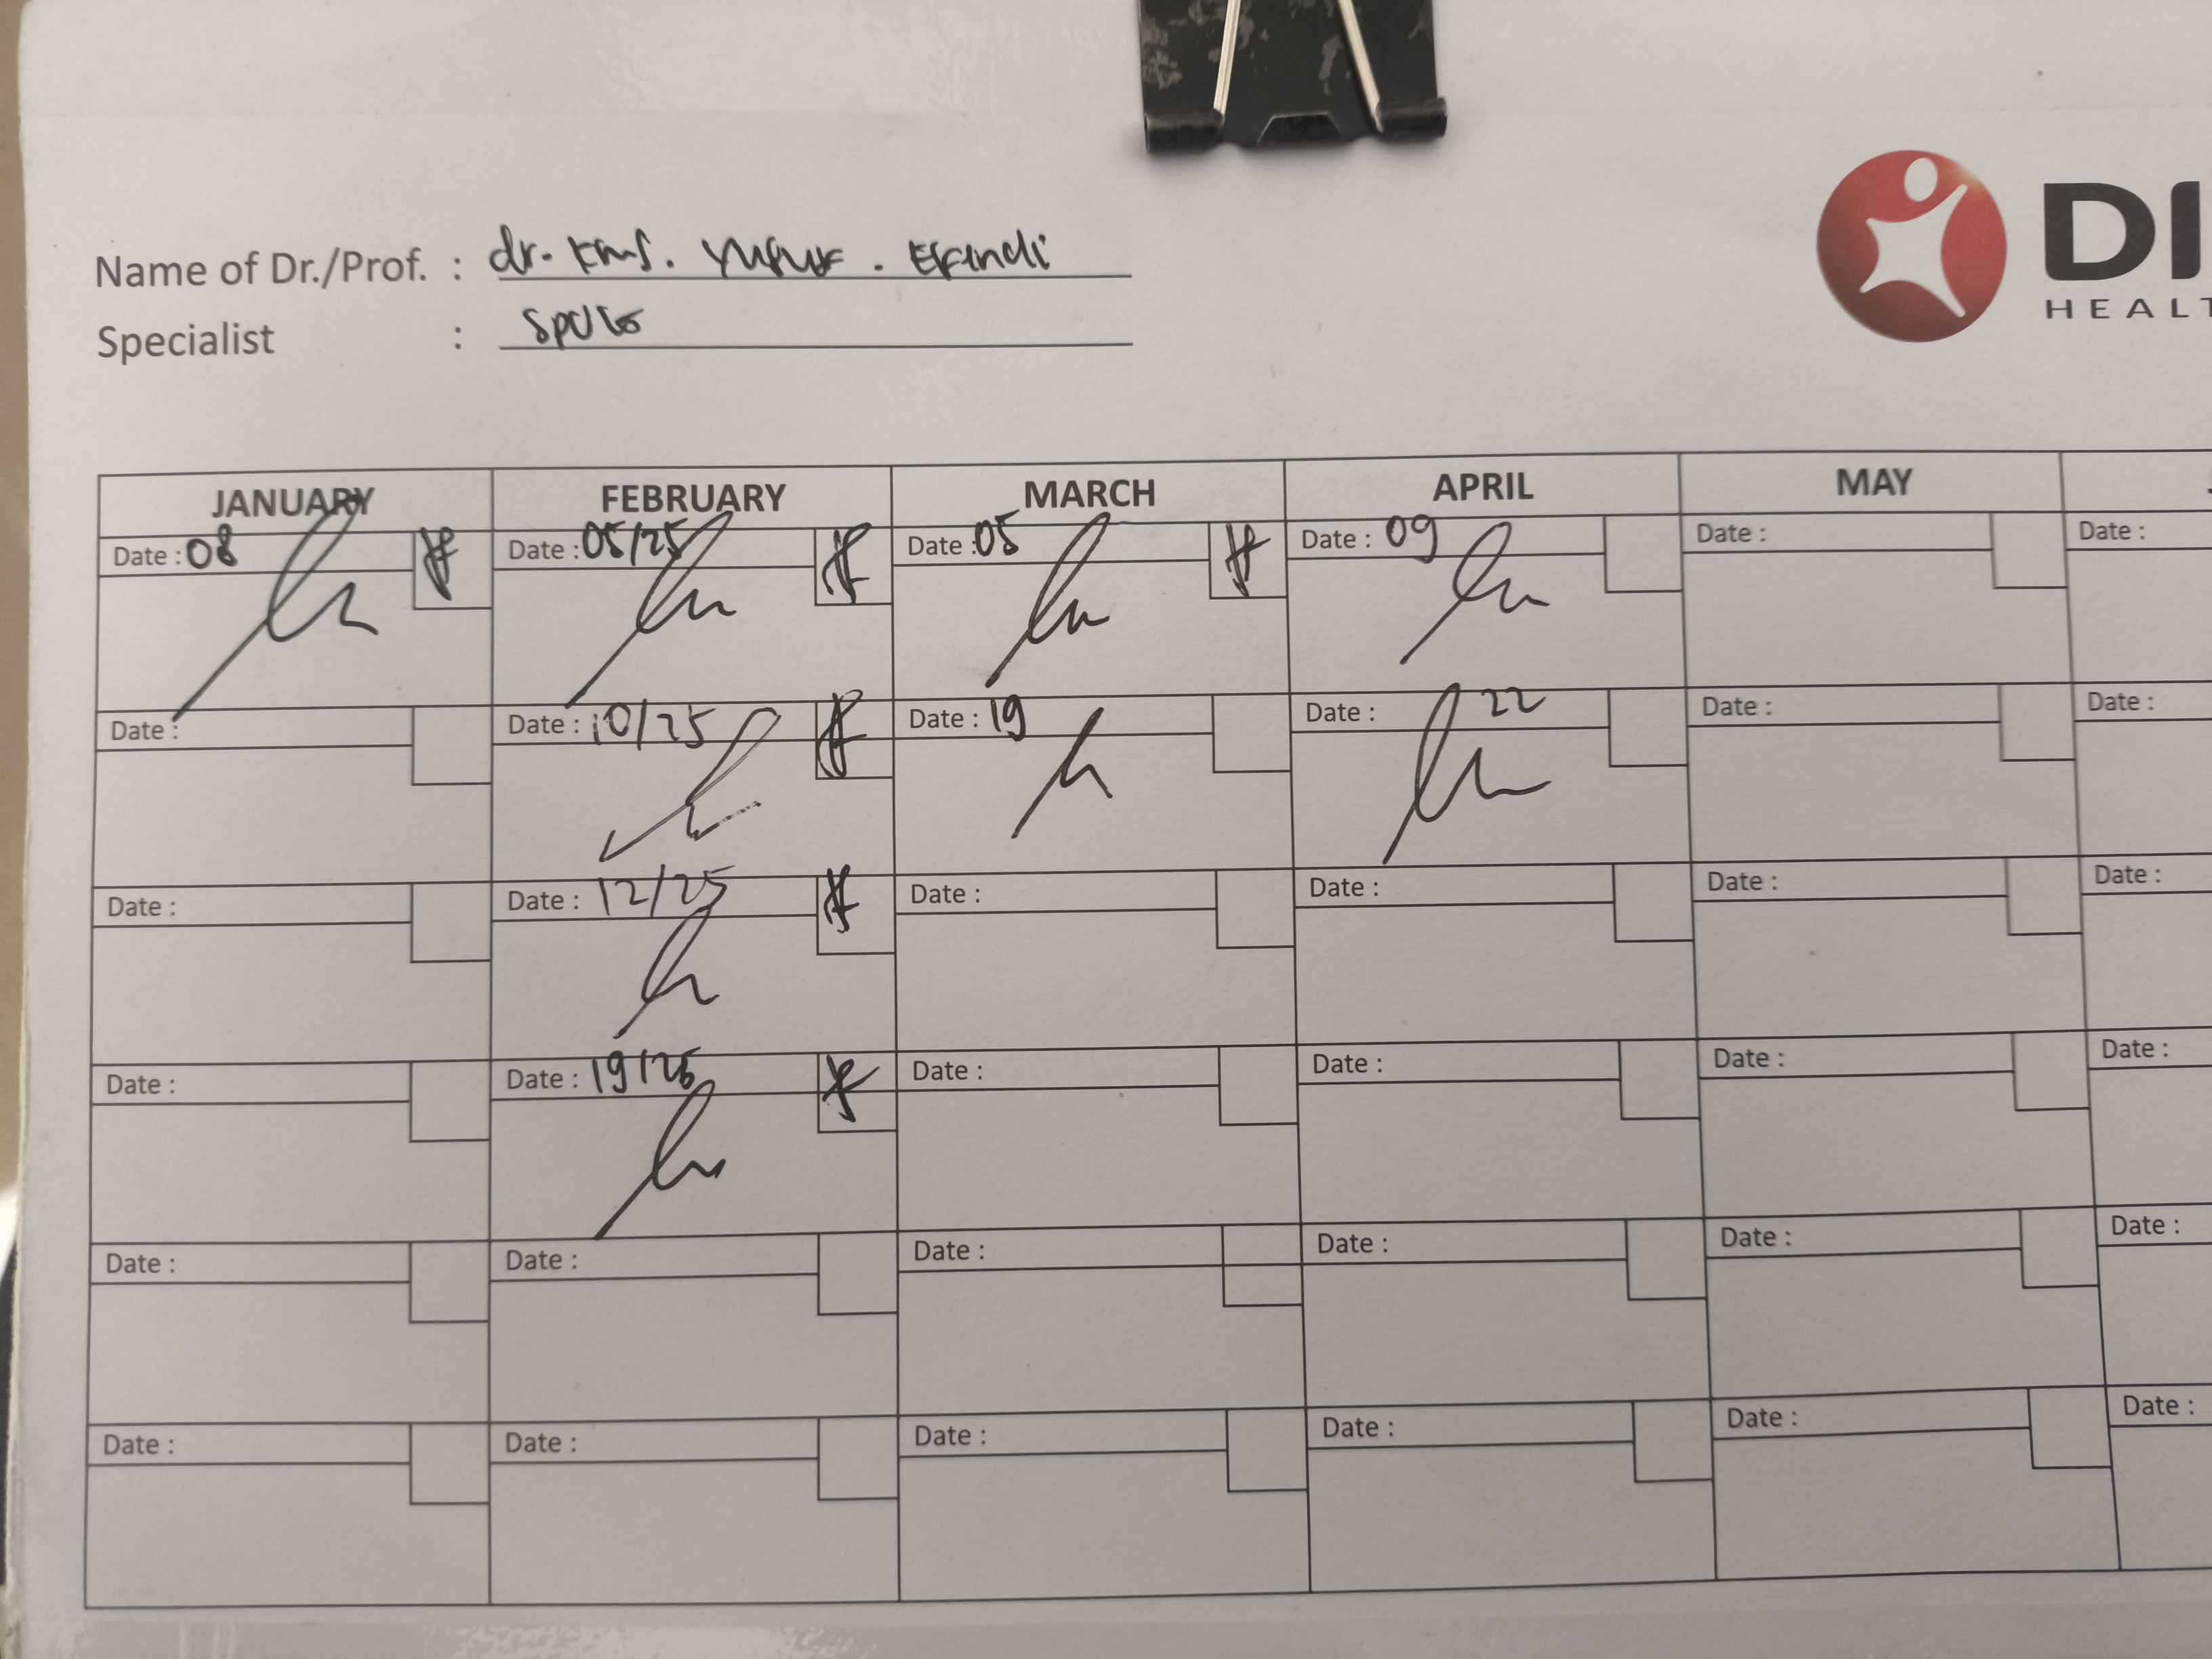 DI
HEALT
Name of Dr./Prof. : dr. Kms. Yusuf. Efendi
Specialist :
JANUARY FEBRUARY MARCH APRIL MAY
Date : 08 Date : 05/25 Date : 05 Date : 09 Date : Date :
Date : Date : 10/25 Date : 19 Date : 22 Date : Date :
Date : Date : 12/25 Date : Date : Date : Date :
Date : Date : 19/25 Date : Date : Date : Date :
Date : Date : Date : Date : Date : Date :
Date : Date : Date : Date : Date : Date :